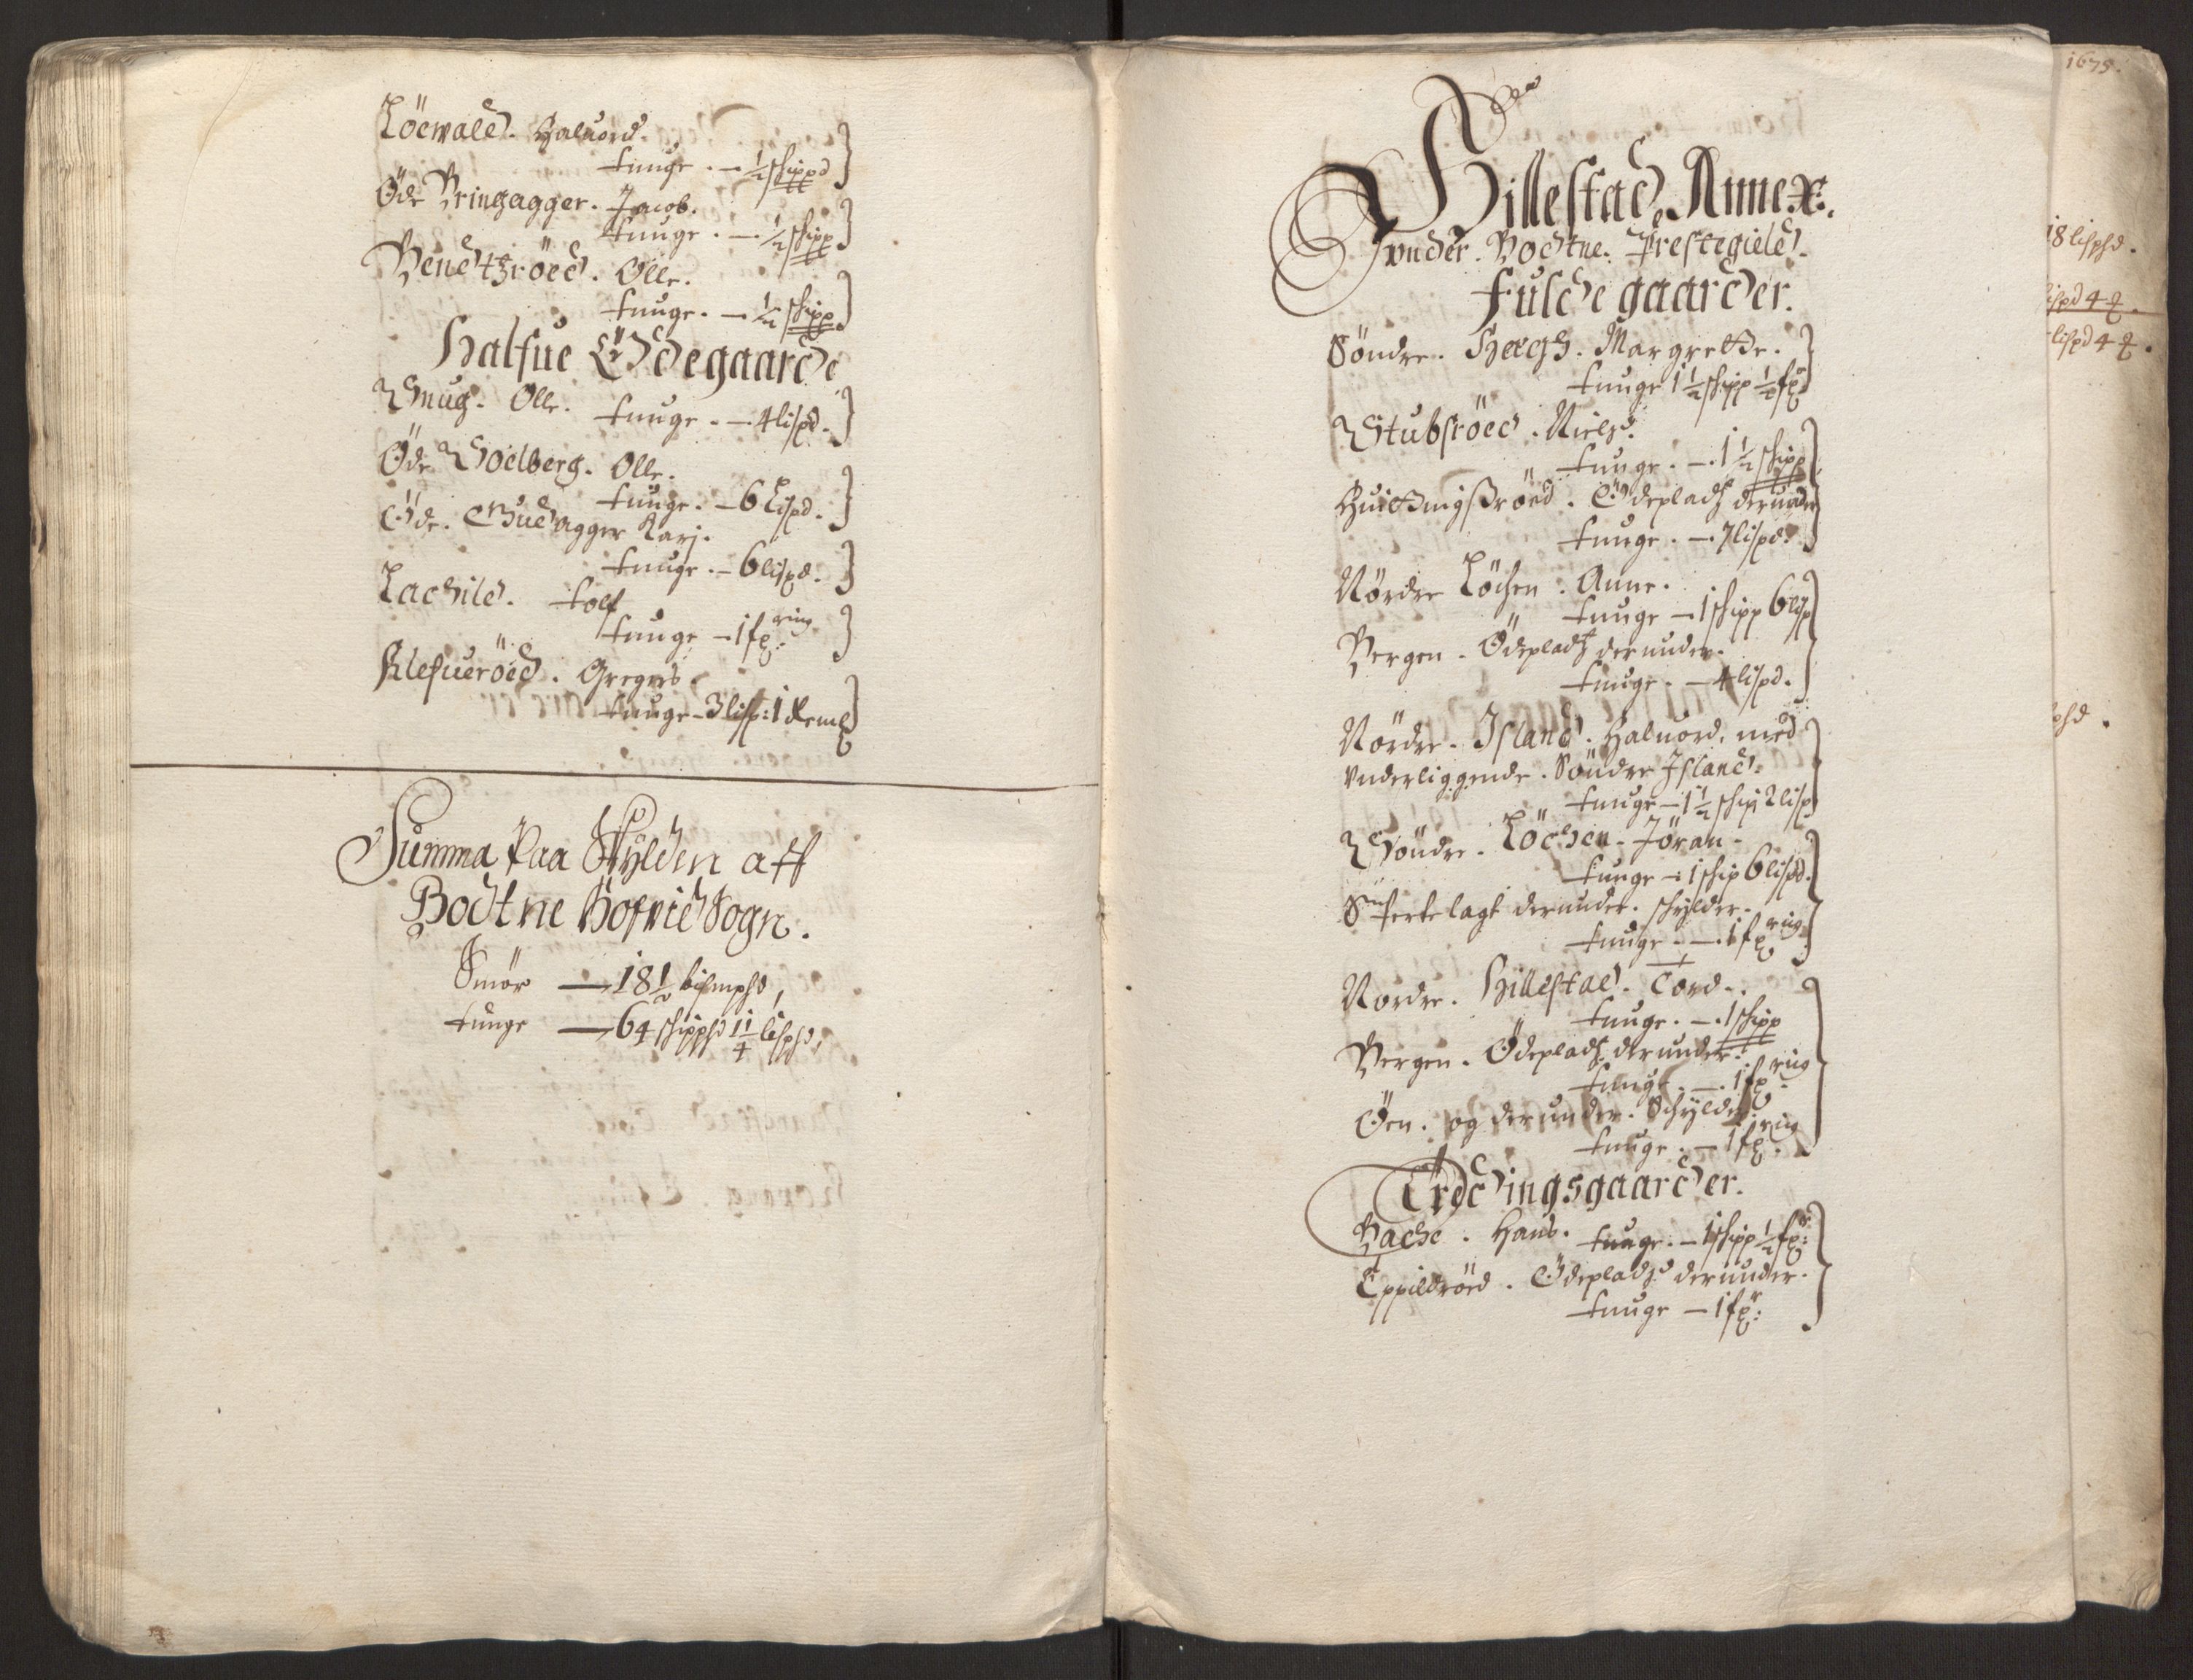 Löewald. Haluord.
tunge. — ½ schippd
Öde Bringagger. Jacob.
tunge. — ½ schipp
Bendtzröed. Olle.
tunge. — ½ schipp
Halfue Ödegaarde
Snug. Olle.
tunge. — 4 lispd.
Öde Soelberg. Olle.
tunge. — 6 Lispd.
Öde. Gudagger Karj.
tunge. — 6 lispd.
Lachild. tolf
tunge — 1 fxring
Klefueröed. Gregers.
tunge — 3 lisp: 1 Reml
Summa Paa Skylden aff
Bodtne Hofvid Sogn.
Smör — 18½ bismphd,
tunge — 64 schipphd 11/4 lisphd,
Hillestad Annex.
under. Bodtne. Prestegield.
Fulde gaarder.
Söndre. Hœgh. Margrette.
tunge 1½ schipp ½ fxr
Stubsröed. Nielß.
tunge. — 1½ schipp
Huittingßröed. Ödepladtz derunder
tunge. — 7 lispd.
Nördre Löchen. Anne.
tunge — 1 schipp 6 lisp
Bergen. Ödepladtz derunder.
tunge. — 4 lispd.
Nördre. Island. Haluord. med
Underliggende. Söndre Island.
tunge — 1½ schip 2 lisp
Söndre. Löchen. Jöran.
tunge — 1 schip 6 lispd.
lagt derunder. schylder.
tunge. — 1 fxring
Nordre. Hillestad. Tord.
tunge. — 1 schipp
Bergen. Ödepladtz derunder.
tunge. — 1 fxring
Öen. og derunder. Schylder.
tunge. — 1 fxring
Ørdingsgaarder.
Bache. Hans. tunge. — 1 schipp ½ fxr:
Eppildröed. Ödepladtz derunder.
tunge — 1 fxr:
1675.
18 lisphd.
ispd 4
lispd 4
phd.